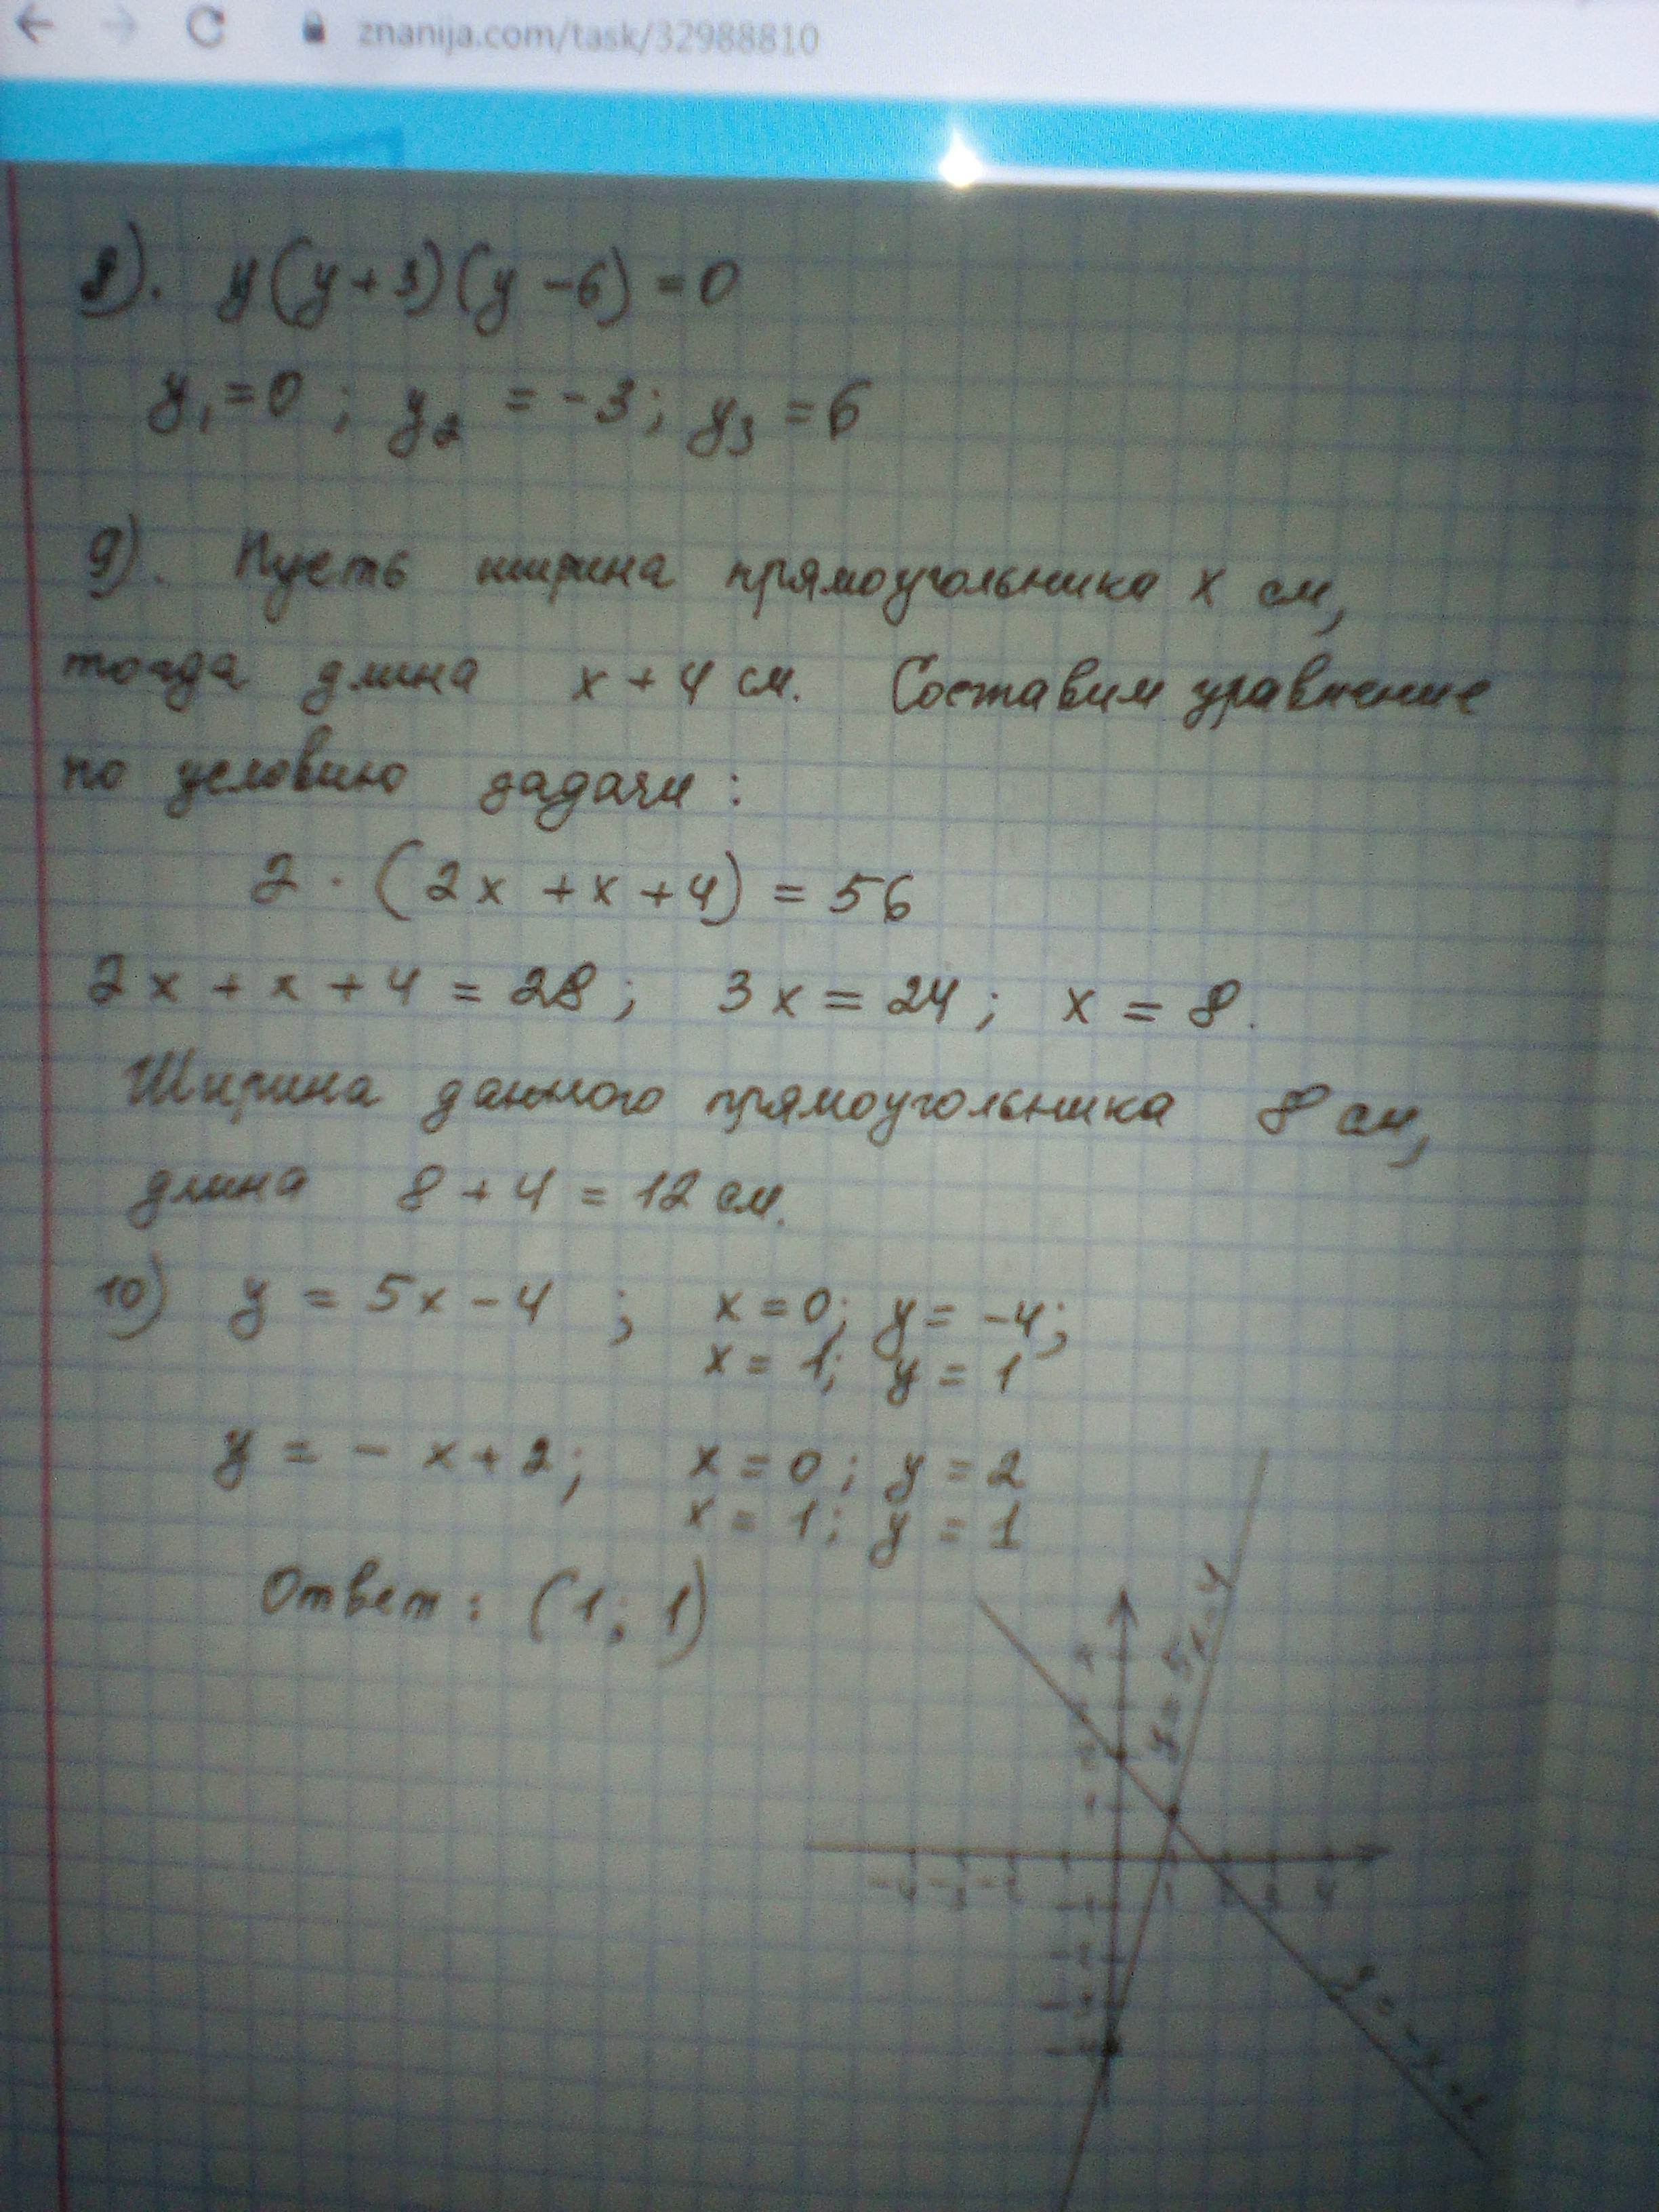 znanija.com/task/32988810
8). y(y+3)(y-6)=0
y₁=0; y₂ = -3; y₃ =6
9). Пусть ширина прямоугольника x см,
тогда длина x+4 см. Составим уравнение
по условию задачи:
2·(2x+x+4)=56
2x+x+4=28; 3x=24; x=8.
Ширина данного прямоугольника 8 см,
длина 8+4=12 см.
10) y=5x-4; x=0; y=-4;
x=1; y=1
y=-x+2; x=0; y=2
x=1; y=1
Ответ: (1; 1)
y=5x-4
2
1
-4 -3 -2 1 2 3 4
y=-x+2